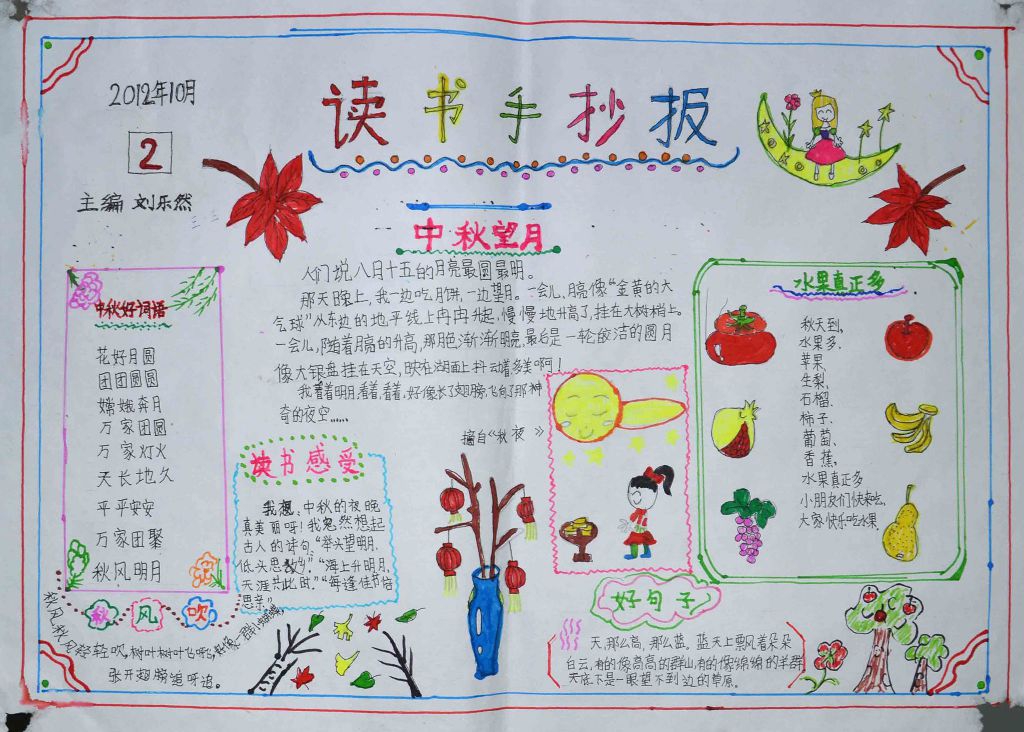 2012年10月
读书手抄报
2
主编 刘乐然
中秋望月
人们说八月十五的月亮最圆最明。
那天晚上,我一边吃月饼,一边望月。一会儿,月亮像“金黄的大
气球”从东边的地平线上冉冉升起,慢慢地升高了,挂在大树梢上。
一会儿,随着月亮的升高,那月色渐渐明亮,最后是一轮皎洁的圆月
像大银盘挂在天空,映在湖面上抖动着多美啊!
我看着明月,看着,看着,好像长了翅膀,飞向了那神
奇的夜空……
摘自《秋夜》
中秋好词语
花好月圆
团团圆圆
嫦娥奔月
万家团圆
万家灯火
天长地久
平平安安
万家团聚
秋风明月
读书感受
我想,中秋的夜晚
真美丽呀!我忽然想起
古人的诗句:“举头望明月,
低头思故乡”“海上升明月,
天涯共此时。”“每逢佳节倍
思亲”
水果真正多
秋天到,
水果多.
苹果、
生梨、
石榴、
柿子、
葡萄、
香蕉,
水果真正多
小朋友们快来吃,
大家快乐吃水果.
秋风吹
秋风秋风轻轻吹,树叶树叶飞呀飞,就像一群小蝴蝶,
张开翅膀追呀追。
好句子
天,那么高,那么蓝。蓝天上飘风着朵朵
白云,有的像高高的群山,有的像绵绵的羊群
天底下是一眼望不到边的草原。